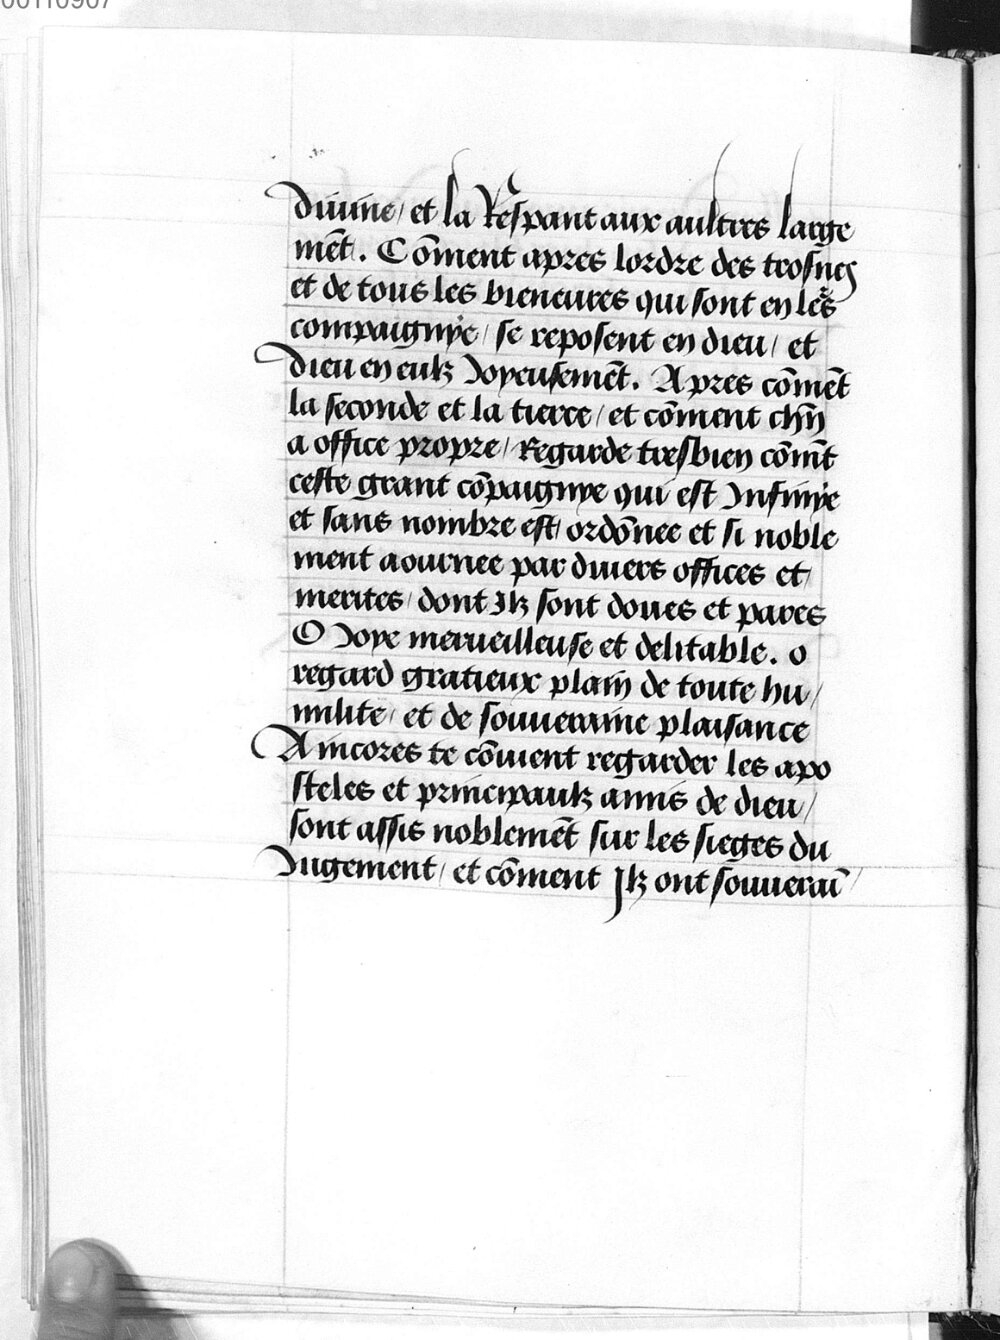 00110907
diuine / et la Respant aux aultres large
mēt . Cōment apres lordre des trosnes
et de tous les bieneures qui sont en le͛
compaignye / se reposent en dieu / et
dieu en eulz Joyeusemēt . Apres cōmēt
la seconde et la tierce / et cōment chūn
a office propre / Regarde tresbien cōmēt
ceste grant cōpaignye qui est Infinye
et sans nombre est ordōnee et si noble
ment aournee par diuers offices et /
merites / dont Ilz sont doues et pares
O Joye merueilleuse et delitable . o
regard gratieux plain de toute hu /
milite / et de souueraine plaisance
Aincores te cōuient regarder les apo
steles et principaulz amis de dieu /
sont assis noblemēt sur les sieges du
Jugement / et cōment Ilz ont souuerai̅ /